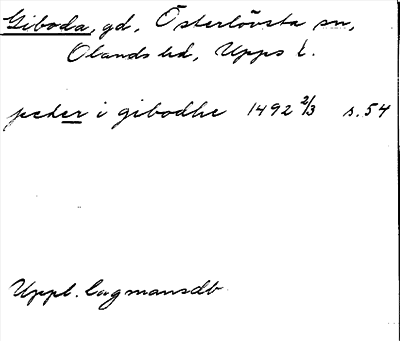 Giboda, gd, Österlövsta sn,
Olands hd, Upps l.
peder i gibodhe 1492 2/3 s. 54
Uppl. lagmansdb